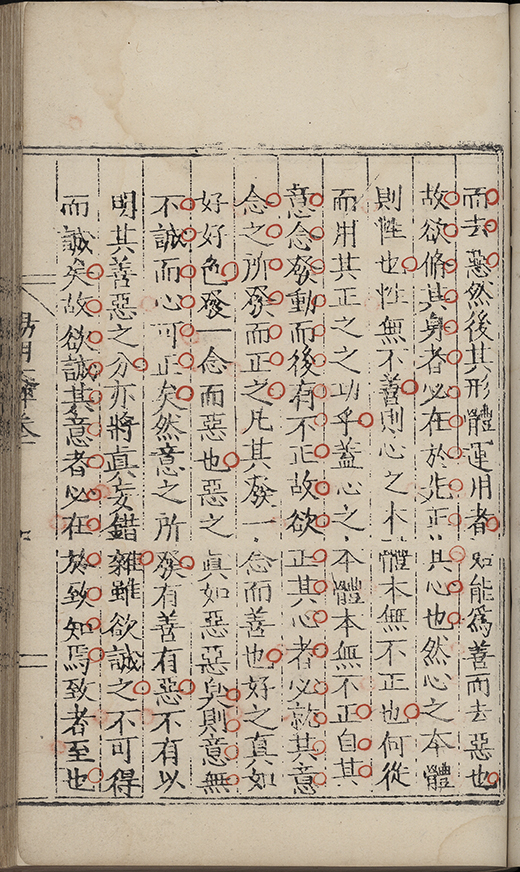 而去惡然後其形體運用者始能爲善而去惡也
故欲脩其身者必在於先正其心也然心之本體
則性也性無不善則心之本體本無不正也何從
而用其正之之功乎蓋心之本體本無不正自其
意念發動而後有不正故欲正其心者必就其意
念之所發而正之凡其發一念而善也好之真如
好好色發一念而惡也惡之真如惡惡臭則意無
不誠而心可正矣然意之所發有善有惡不有以
明其善惡之分亦將真妄錯雜雖欲誠之不可得
而誠矣故欲誠其意者必在於致知焉致者至也